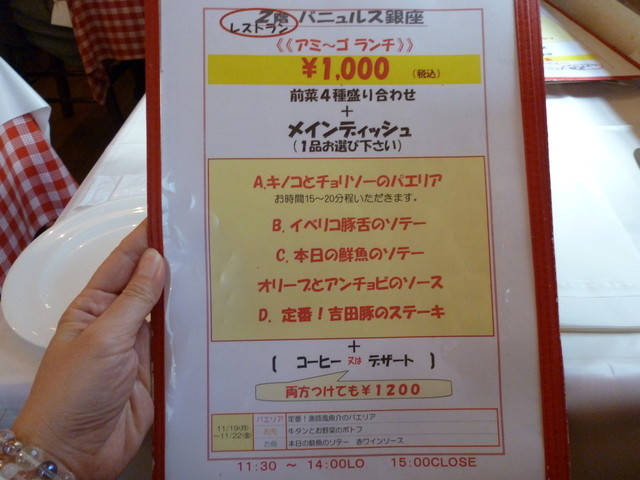 2階 バニュルス銀座
レストラン
《《アミ～ゴ ランチ》》
¥1,000 (税込)
前菜4種盛り合わせ
+
メインディッシュ
(1品お選び下さい)
A.キノコとチョリソーのパエリア
お時間15～20分程いただきます。
B. イベリコ豚舌のソテー
C. 本日の鮮魚のソテー
オリーブとアンチョビのソース
D. 定番!吉田豚のステーキ
+
( コーヒー 又は デザート )
両方つけても¥1200
パエリア 定番!漁師風魚介のパエリア
11/19(月)
～11/22(金)
お肉 牛タンとお野菜のポトフ
お魚 本日の鮮魚のソテー 赤ワインソース
11:30 ～ 14:00LO 15:00CLOSE